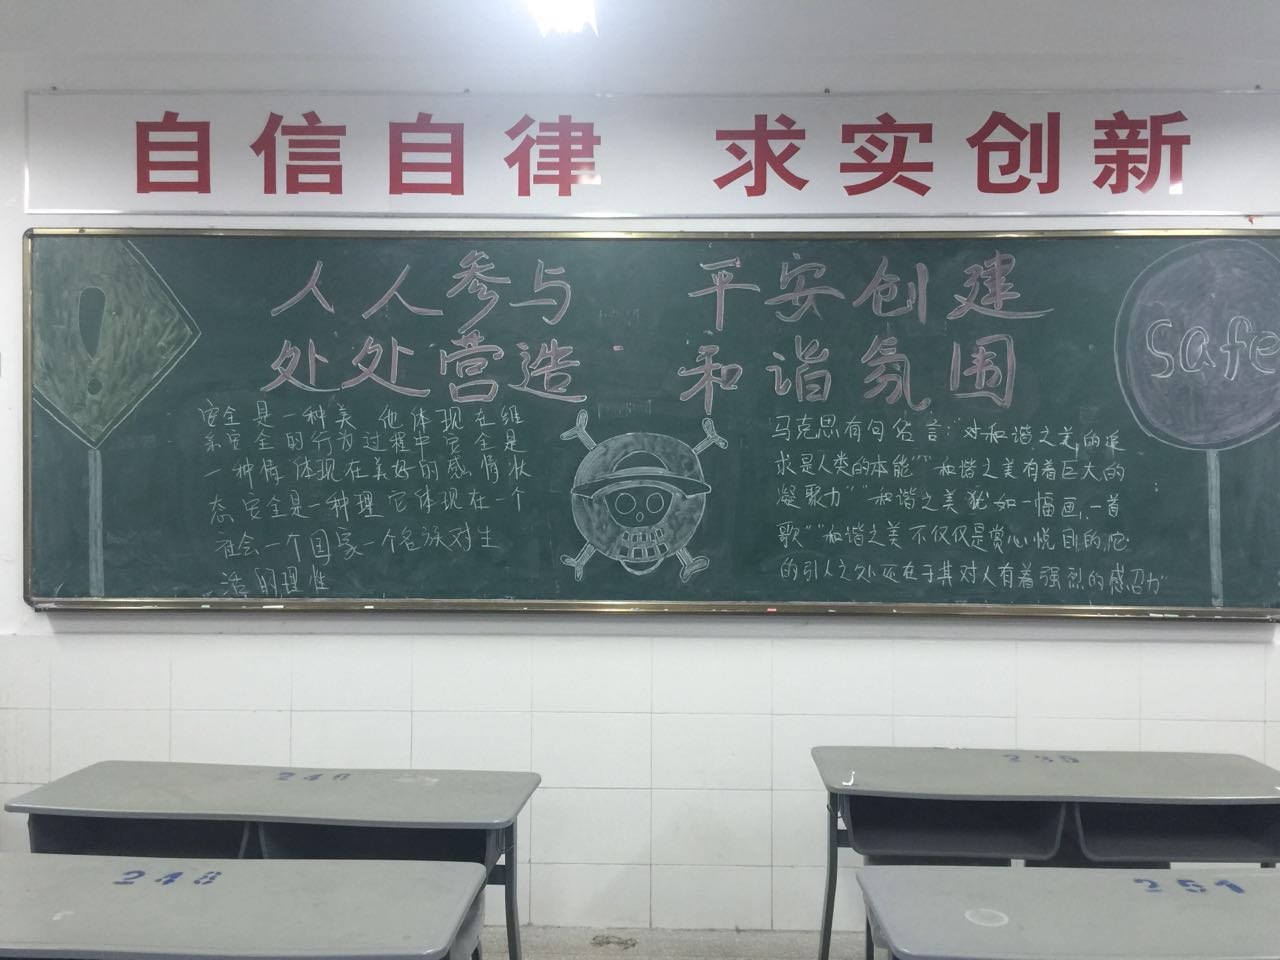 自信自律 求实创新
人人参与 平安创建
处处营造 和谐氛围
Safe
安全是一种美 他体现在维
系安全的行为过程中安全是
一种情 体现在美好的感情状
态安全是一种理 它体现在一个
社会一个国家一个名族对生
活的理性
马克思有句名言:"对和谐之美的追
求是人类的本能""和谐之美有着巨大的
凝聚力""和谐之美犹如一幅画,一首
歌""和谐之美不仅仅是赏心悦目的,它
的引人之处还在于其对人有着强烈的感召力"
246
235
248
251